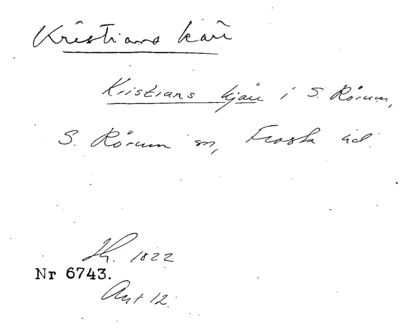 Kristians kärr
Kristians kjärr i S. Rörum,
S. Rörum sn, Frosta hd.
Sk. 1822
Nr 6743.
Ant 12.